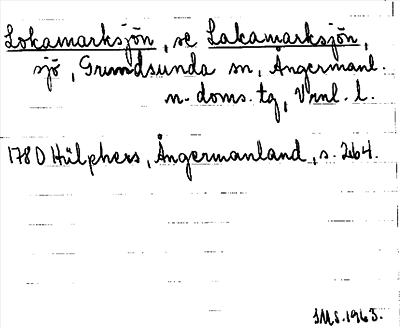 Lokamarksjön, se Lakamarksjön,
sjö, Grundsunda sn, Ångermanl.
n. doms. tg, Vrnl. l.
1780 Hülphers, Ångermanland, s. 264.
IMS. 1963.